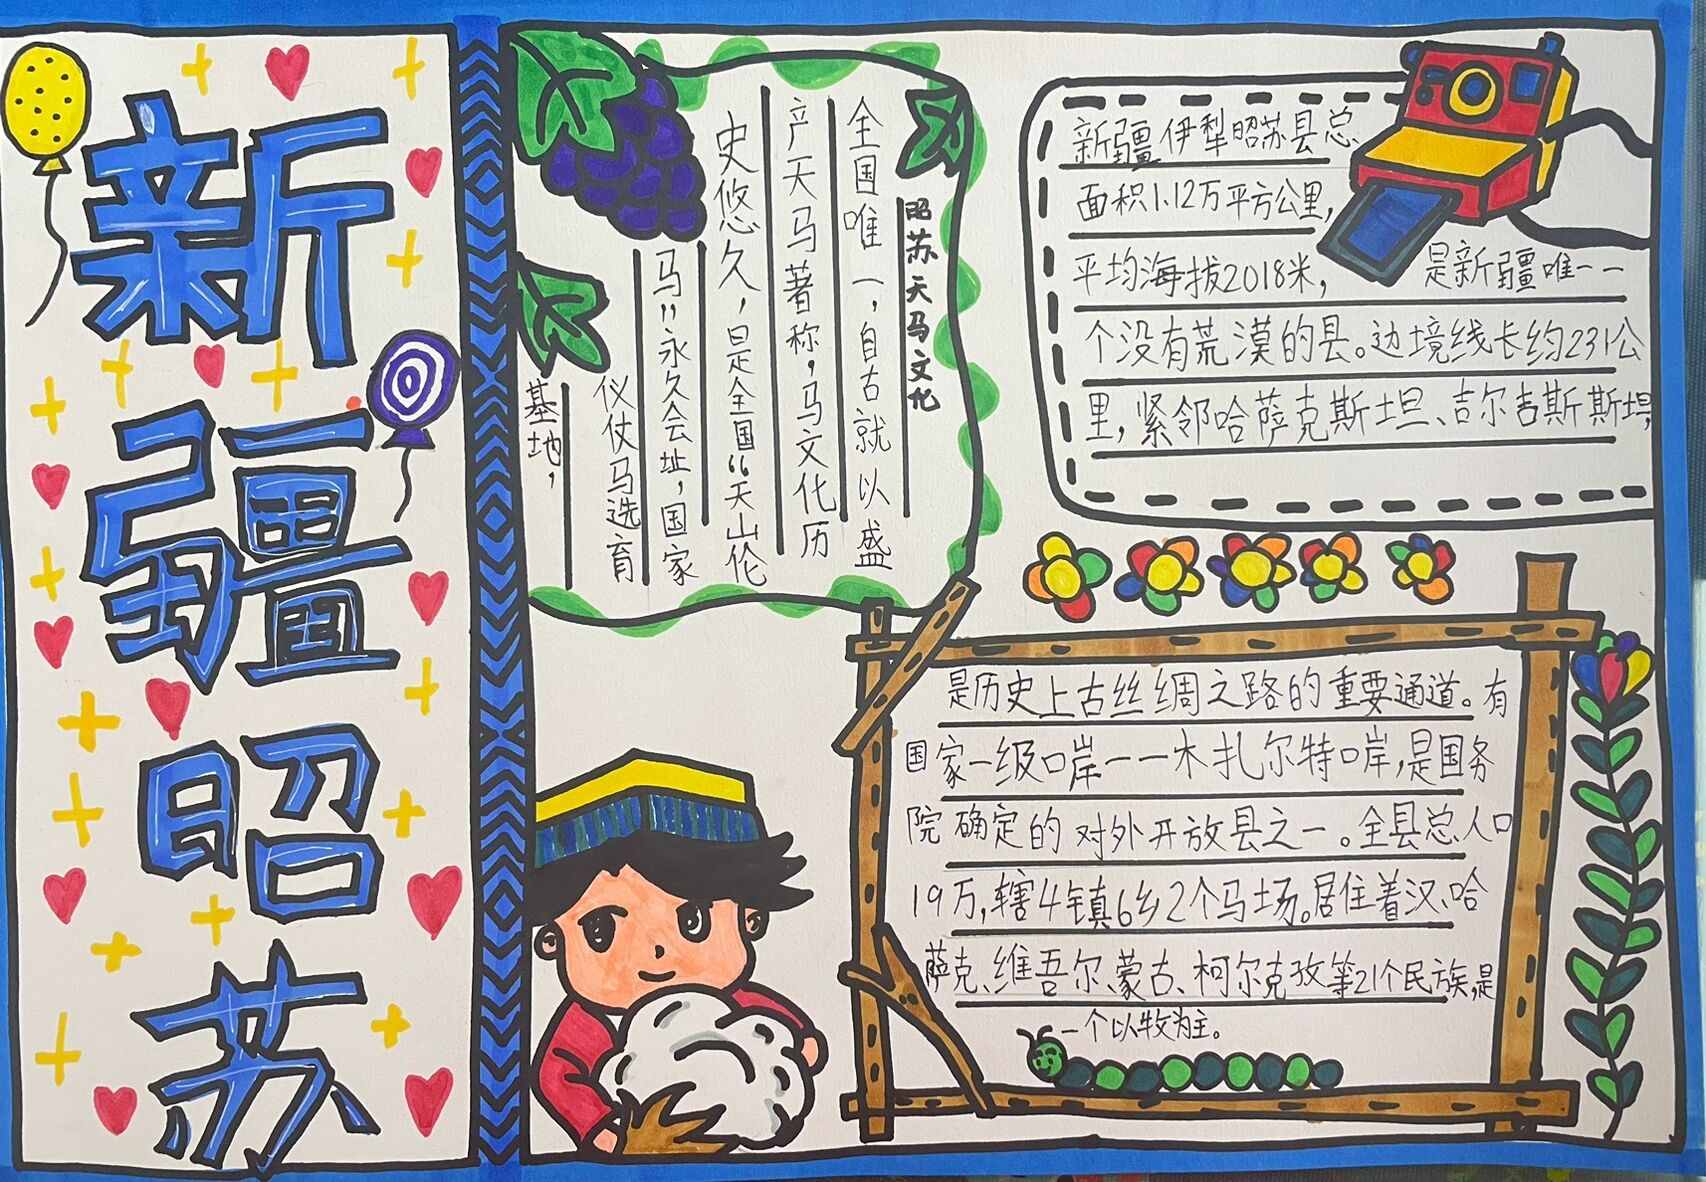 新疆昭苏
昭苏天马文化
全国唯一，自古就以盛
产天马著称，马文化历
史悠久，是全国“天山伦
马”永久会址，国家
仪仗马选育
基地，
新疆伊犁昭苏县总
面积1.12万平方公里，
平均海拔2018米，是新疆唯一一
个没有荒漠的县。边境线长约231公
里，紧邻哈萨克斯坦、吉尔吉斯斯坦，
是历史上古丝绸之路的重要通道。有
国家一级口岸——木扎尔特口岸，是国务
院确定的对外开放县之一。全县总人口
19万，辖4镇6乡2个马场。居住着汉、哈
萨克、维吾尔、蒙古、柯尔克孜等21个民族，是
一个以牧为主。